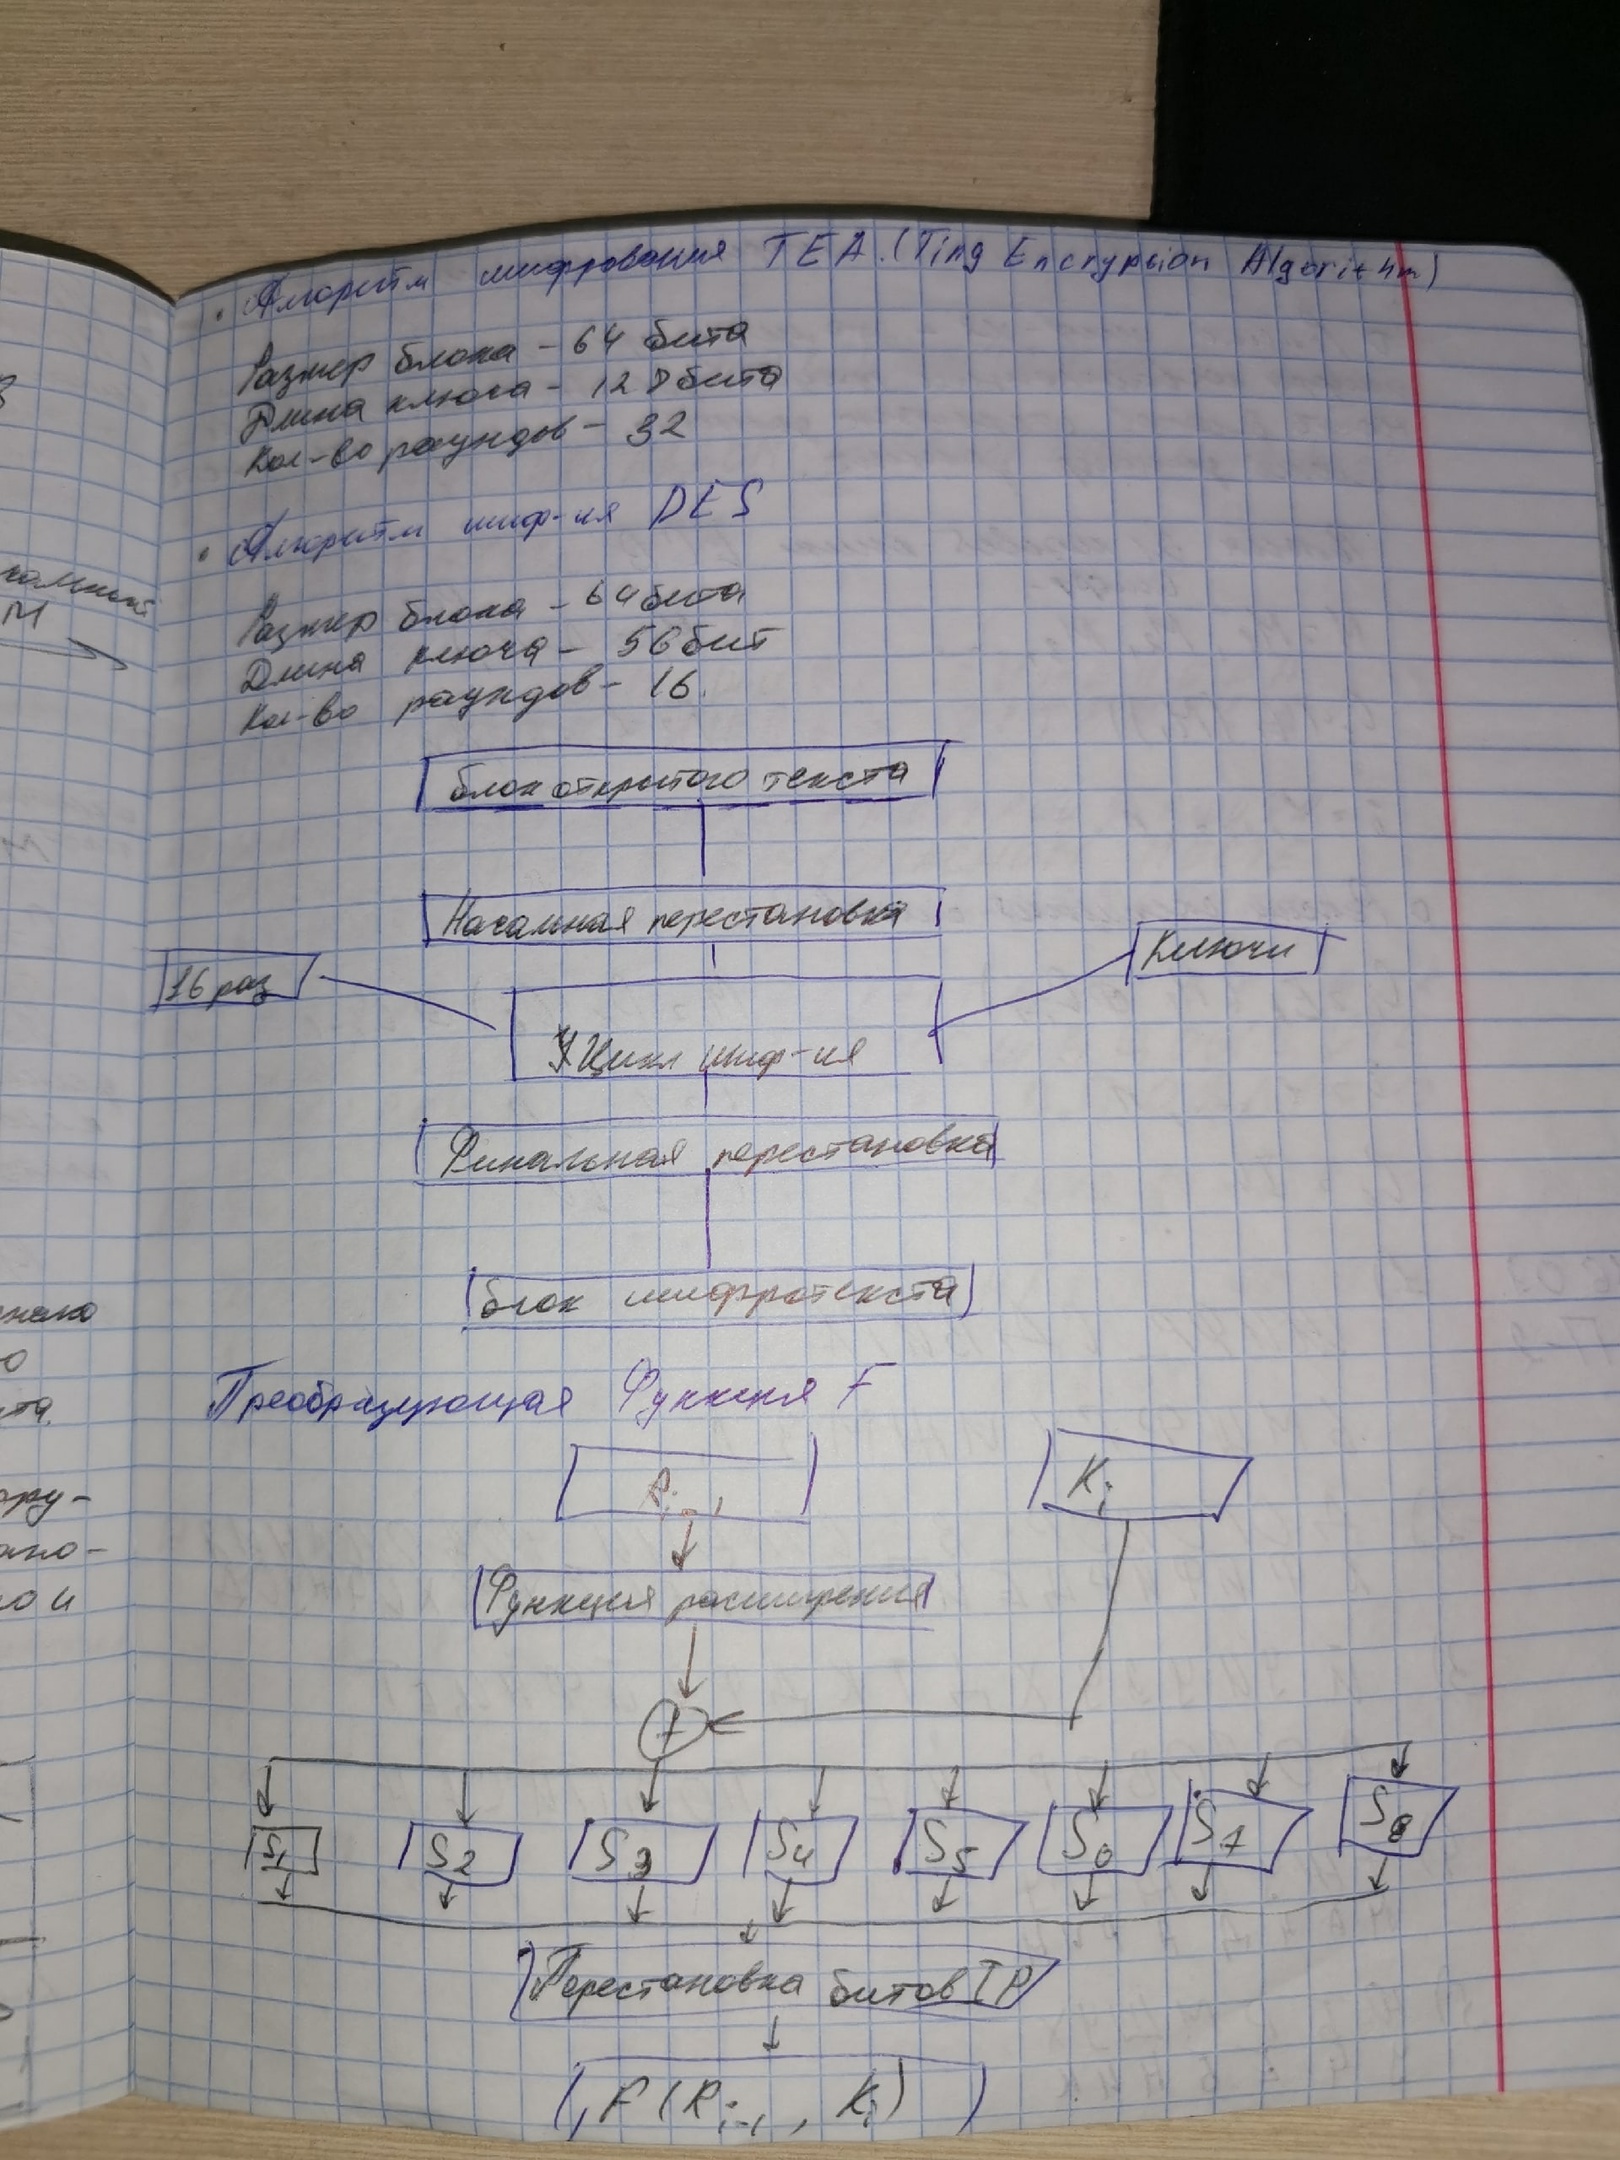 • Алгоритм шифрования TEA. (Ting Encrypsion Algorithm)
Размер блока - 64 бита
Длина ключа - 128 бита
Кол-во раундов - 32
• Алгоритм шиф-ия DES
Размер блока - 64 бита
Длина ключа - 56 бит
Кол-во раундов - 16.
блок открытого текста
Начальная перестановка
16 раз
Ключи
Цикл шиф-ия
Финальная перестановка
блок шифротекста
Преобразующая Функция F
R i-1
K i
Функция расширения
+
S1 S2 S3 S4 S5 S6 S7 S8
Перестановка битов IP
F (R i-1, K i)